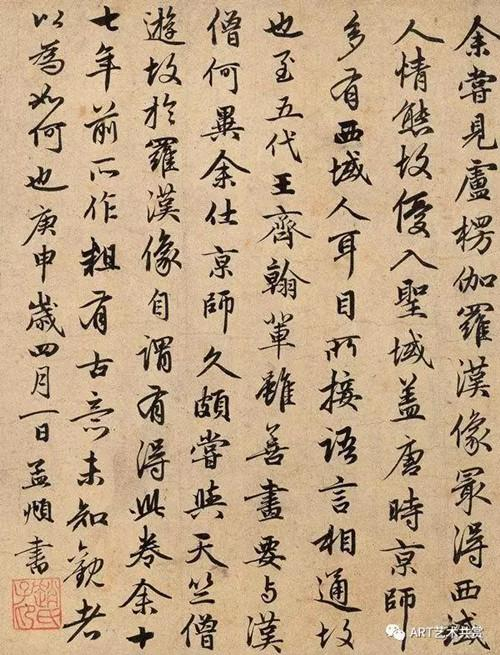 余嘗見盧楞伽羅漢像最得西域
人情態故優入聖域盖唐時京師
多有西域人耳目所接語言相通故
也至五代王齊翰輩雖善畫要与漢
僧何異余仕京師久頗嘗與天竺僧
遊故於羅漢像自謂有得此卷余十
七年前所作粗有古意未知觀者
以為如何也庚申歲四月一日孟頫書
趙氏子昂
ART艺术共赏